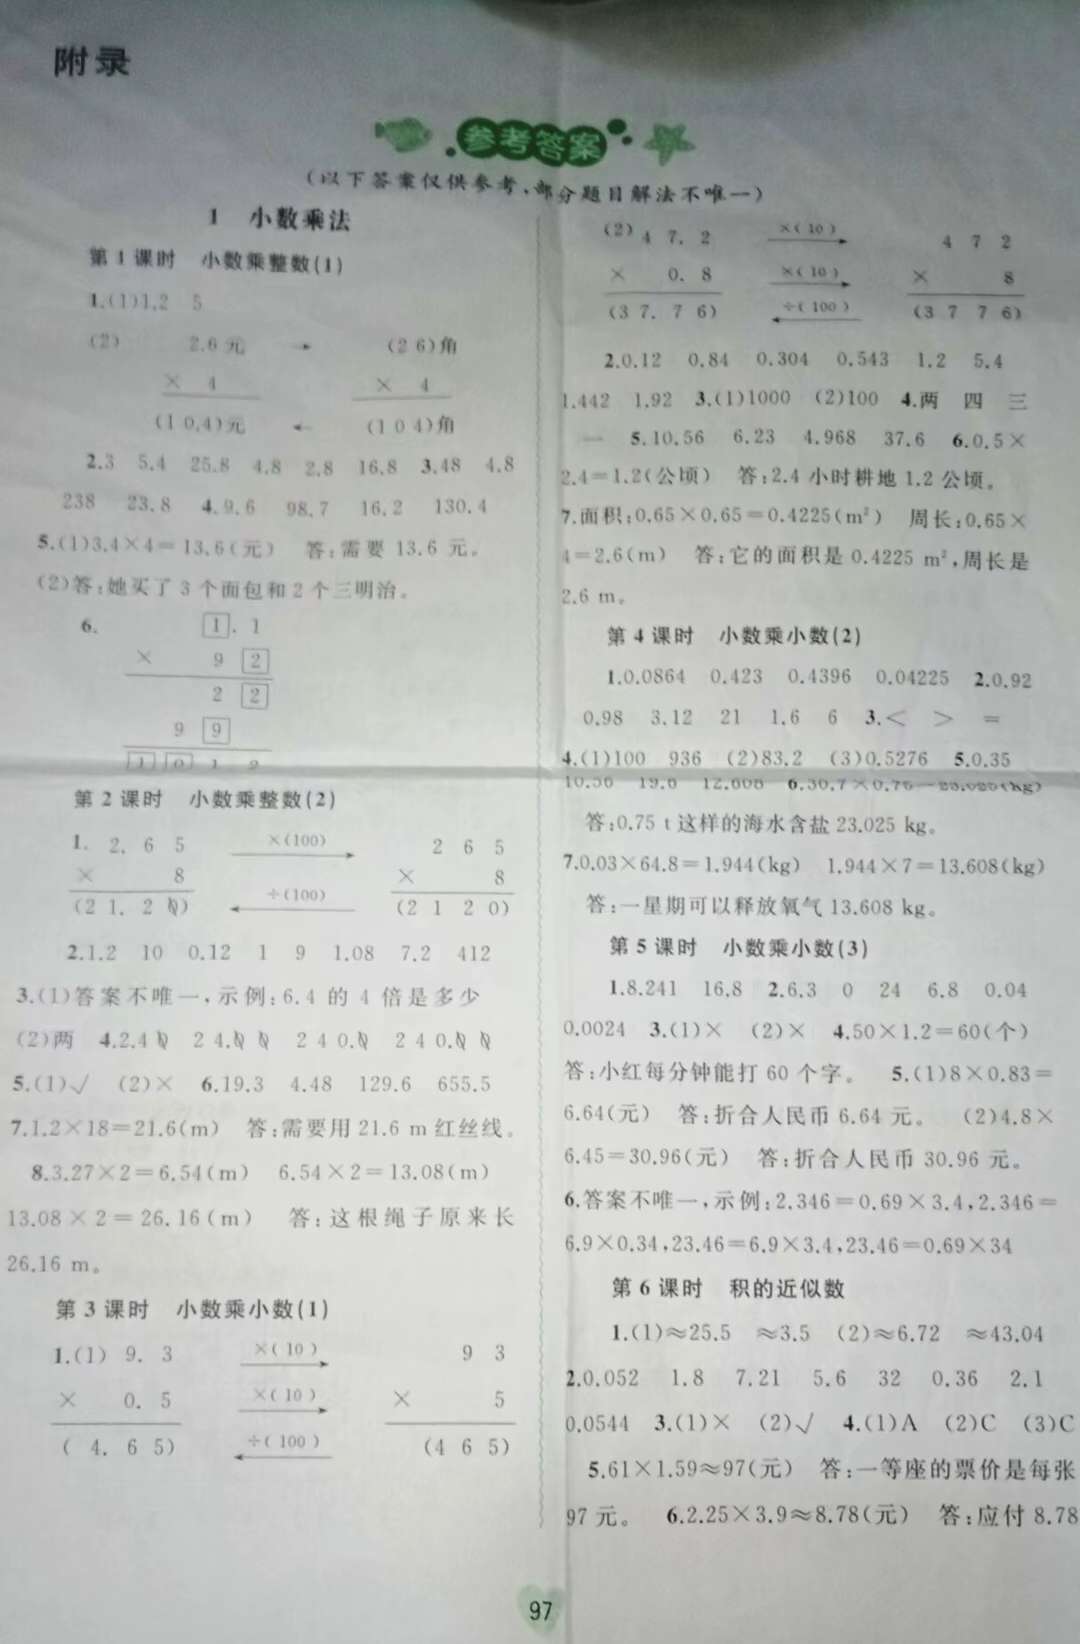 附录
参考答案
(以下答案仅供参考,部分题目解法不唯一)
1 小数乘法
第 1 课时 小数乘整数(1)
1.(1)1.2 5
(2) 2.6 元 → (2 6)角
× 4 × 4
(1 0.4)元 ← (1 0 4)角
2.3 5.4 25.8 4.8 2.8 16.8 3.48 4.8
238 23.8 4.9.6 98.7 16.2 130.4
5.(1)3.4×4=13.6(元) 答:需要 13.6 元。
(2)答:她买了 3 个面包和 2 个三明治。
6. 1. 1
× 9 2
2 2
9 9
1 0 1 2
第 2 课时 小数乘整数(2)
1. 2. 6 5 ×(100) 2 6 5
× 8 ÷(100) × 8
(2 1. 2 0) (2 1 2 0)
2.1.2 10 0.12 1 9 1.08 7.2 412
3.(1)答案不唯一,示例:6.4 的 4 倍是多少
(2)两 4.2.4 0 2 4.0 0 2 4 0.0 2 4 0.0 0
5.(1)√ (2)× 6.19.3 4.48 129.6 655.5
7.1.2×18=21.6(m) 答:需要用 21.6 m 红丝线。
8.3.27×2=6.54(m) 6.54×2=13.08(m)
13.08×2=26.16(m) 答:这根绳子原来长
26.16 m。
第 3 课时 小数乘小数(1)
1.(1) 9. 3 ×( 10 ) 9 3
× 0. 5 ×( 10 ) × 5
( 4. 6 5) ÷( 100 ) (4 6 5)
(2) 4 7. 2 ×( 10 ) 4 7 2
× 0. 8 ×( 10 ) × 8
(3 7. 7 6) ÷( 100 ) (3 7 7 6)
2.0.12 0.84 0.304 0.543 1.2 5.4
1.442 1.92 3.(1)1000 (2)100 4.两 四 三
一 5.10.56 6.23 4.968 37.6 6.0.5×
2.4=1.2(公顷) 答:2.4 小时耕地 1.2 公顷。
7.面积:0.65×0.65=0.4225(m²) 周长:0.65×
4=2.6(m) 答:它的面积是 0.4225 m²,周长是
2.6 m。
第 4 课时 小数乘小数(2)
1.0.0864 0.423 0.4396 0.04225 2.0.92
0.98 3.12 21 1.6 6 3.< > =
4.(1)100 936 (2)83.2 (3)0.5276 5.0.35
10.56 19.6 12.608 6.30.7×0.75=23.025(kg)
答:0.75 t 这样的海水含盐 23.025 kg。
7.0.03×64.8=1.944(kg) 1.944×7=13.608(kg)
答:一星期可以释放氧气 13.608 kg。
第 5 课时 小数乘小数(3)
1.8.241 16.8 2.6.3 0 24 6.8 0.04
0.0024 3.(1)× (2)× 4.50×1.2=60(个)
答:小红每分钟能打 60 个字。 5.(1)8×0.83=
6.64(元) 答:折合人民币 6.64 元。 (2)4.8×
6.45=30.96(元) 答:折合人民币 30.96 元。
6.答案不唯一,示例:2.346=0.69×3.4,2.346=
6.9×0.34,23.46=6.9×3.4,23.46=0.69×34
第 6 课时 积的近似数
1.(1)≈25.5 ≈3.5 (2)≈6.72 ≈43.04
2.0.052 1.8 7.21 5.6 32 0.36 2.1
0.0544 3.(1)× (2)√ 4.(1)A (2)C (3)C
5.61×1.59≈97(元) 答:一等座的票价是每张
97 元。 6.2.25×3.9≈8.78(元) 答:应付 8.78
97